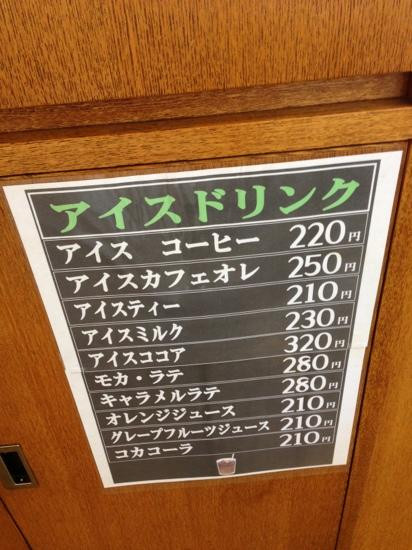 アイスドリンク
アイス　コーヒー 220円
アイスカフェオレ 250円
アイスティー 210円
アイスミルク 230円
アイスココア 320円
モカ・ラテ 280円
キャラメルラテ 280円
オレンジジュース 210円
グレープフルーツジュース 210円
コカコーラ 210円